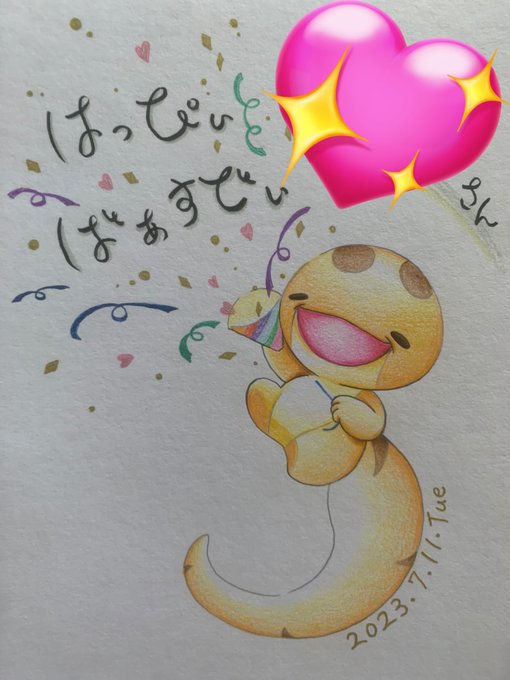 はっぴぃ
ばぁすでぃ
さん
2023.7.11.Tue